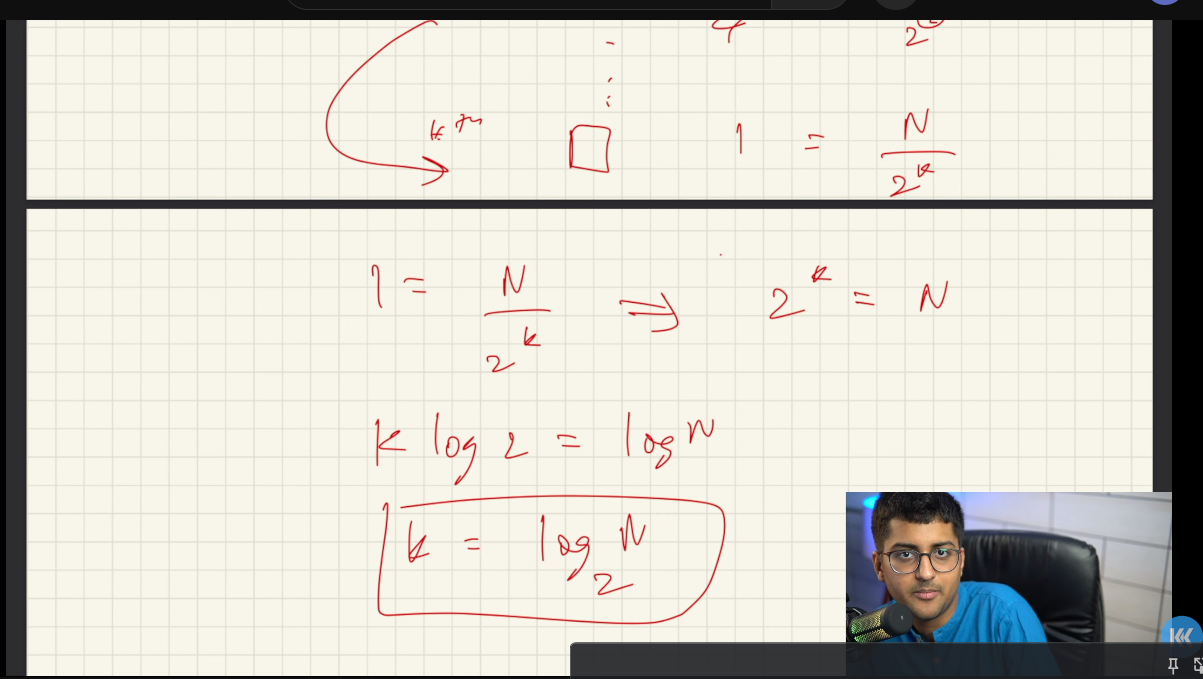 4 2
kth 1 = N / 2^k
1 = N / 2^k ⇒ 2^k = N
k log 2 = log N
k = log_2 N
KK